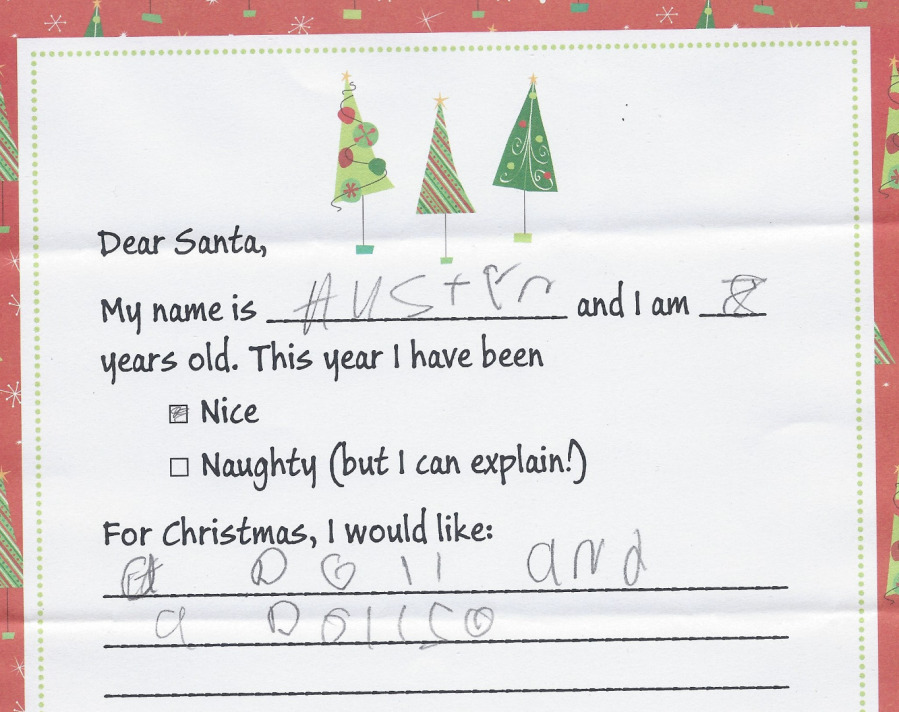 Dear Santa,
My name is AUStin and I am 8
years old. This year I have been
Nice
Naughty (but I can explain!)
For Christmas, I would like:
a DOll and
a DOllSO